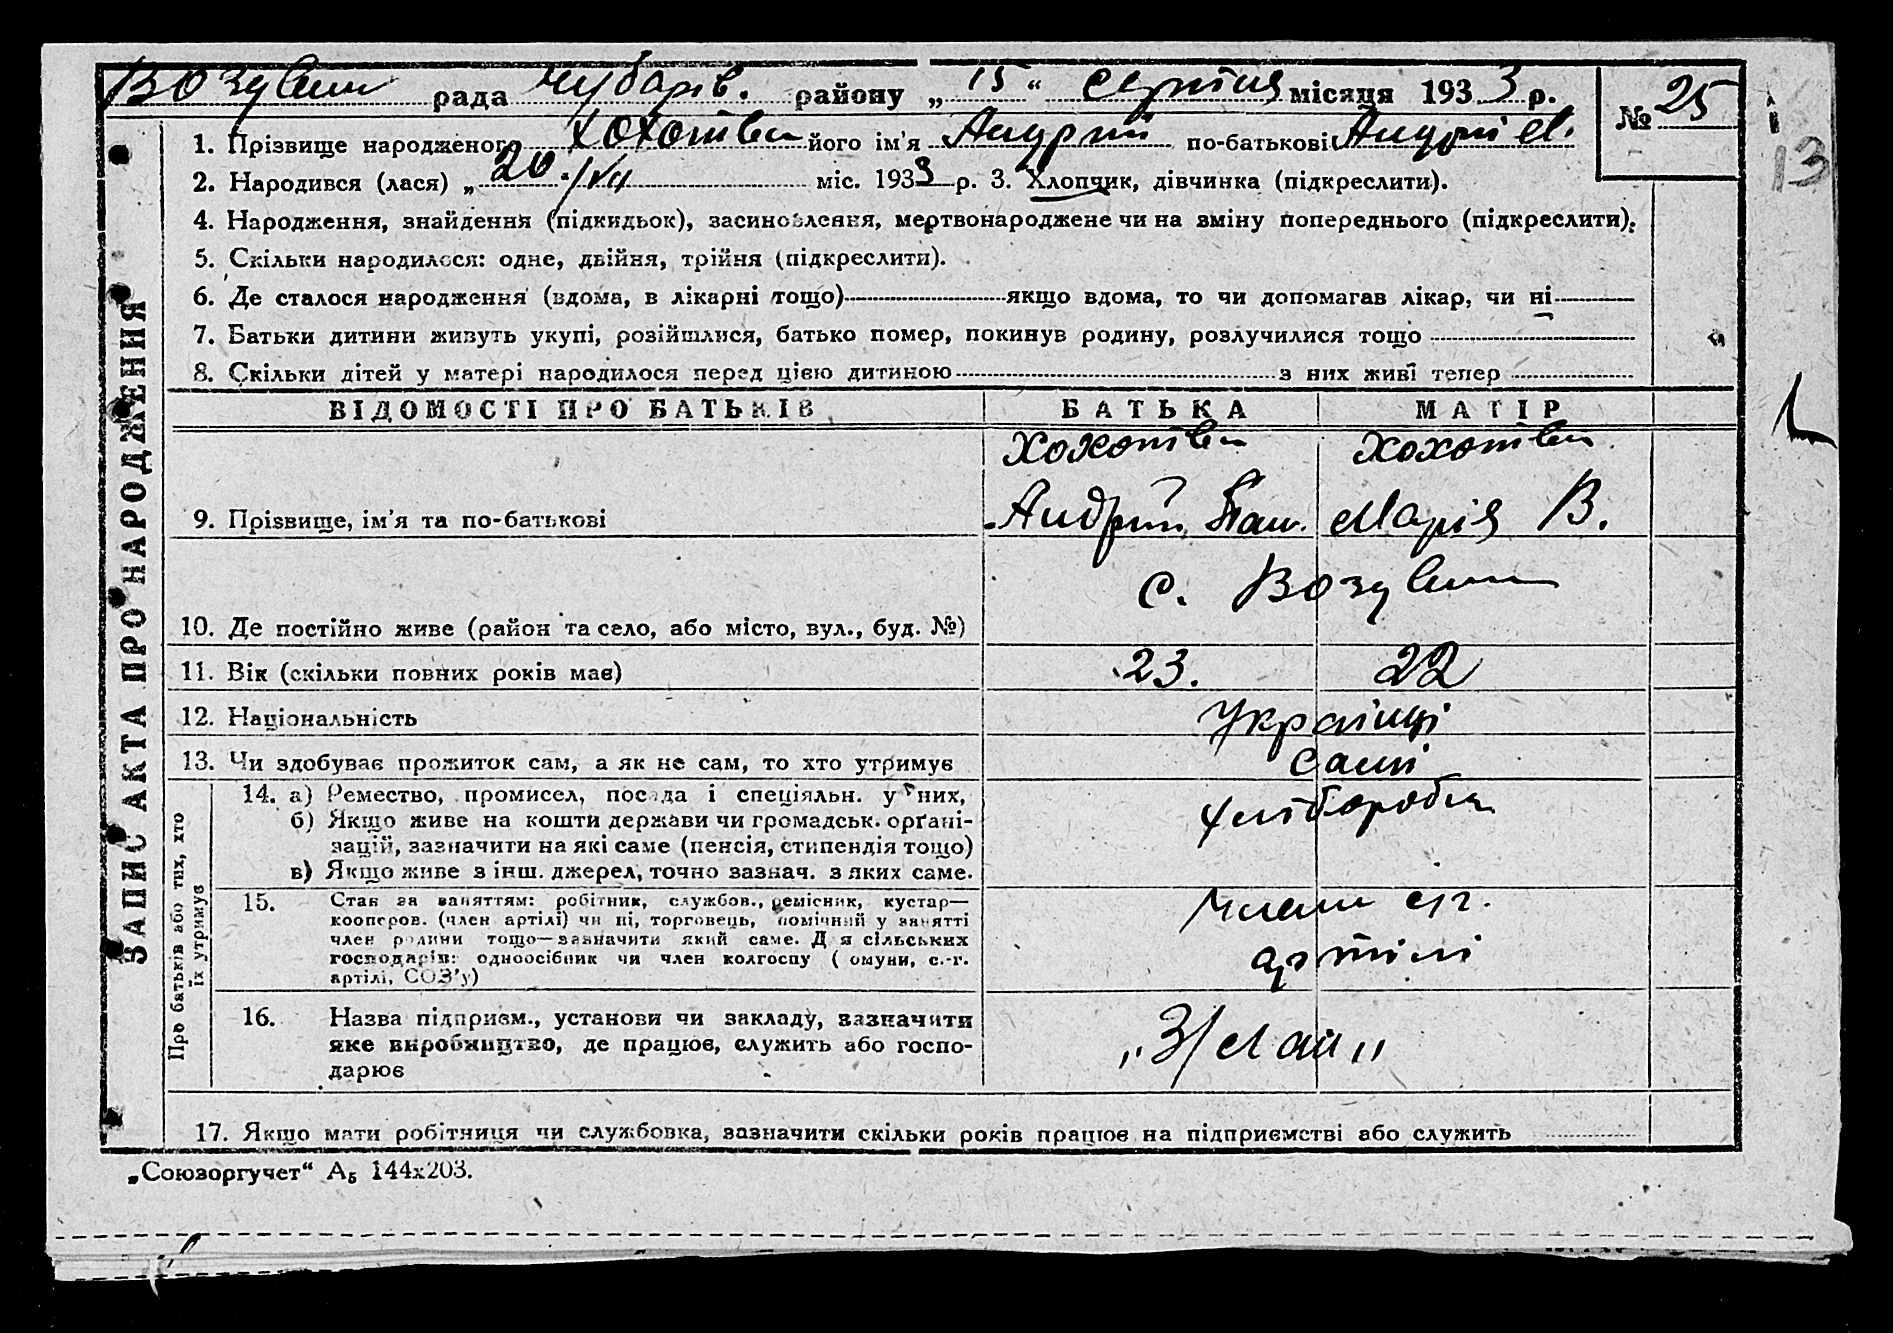 рада Чубарів. району „ 15 “ серпня місяця 1933 р.
№ 25
13
1. Прізвище народженого його ім’я Андрій по-батькові Андрій
2. Народився (лася) „ 20 /VII міс. 1933 р. 3. Хлопчик, дівчинка (підкреслити).
4. Народження, знайдення (підкидьок), засиновлення, мертвонароджене чи на зміну попереднього (підкреслити).
5. Скільки народилося: одне, двійня, трійня (підкреслити).
6. Де сталося народження (вдома, в лікарні тощо) якщо вдома, то чи допомагав лікар, чи ні
7. Батьки дитини живуть укупі, розійшлися, батько помер, покинув родину, розлучилися тощо
8. Скільки дітей у матері народилося перед цією дитиною з них живі тепер
ЗАПИС АКТА ПРО НАРОДЖЕННЯ
ВІДОМОСТІ ПРО БАТЬКІВ БАТЬКА МАТІР
9. Прізвище, ім’я та по-батькові Андрій Пан. Марія В.
с.
10. Де постійно живе (район та село, або місто, вул., буд. №)
11. Вік (скільки повних років має) 23. 22
12. Національність Українці
13. Чи здобуває прожиток сам, а як не сам, то хто утримує Самі
Про батьків або тих, хто
їх утримує
14. а) Ремество, промисел, посада і спеціяльн. у них, хлібороби
б) Якщо живе на кошти держави чи громадськ. орґані-
зацій, зазначити на які саме (пенсія, стипендія тощо)
в) Якщо живе з інш. джерел, точно зазнач. з яких саме.
15. Стан за заняттям: робітник, службов., ремісник, кустар— Члени с/г.
кооперов. (член артілі) чи ні, торговець, помічний у занятті
член родини тощо—зазначити який саме. Для сільських артілі
господарів: одноосібник чи член колгоспу (комуни, с.-г.
артілі, СОЗ’у)
16. Назва підприєм., установи чи закладу, зазначити
яке виробництво, де працює, служить або госпо-
дарює
17. Якщо мати робітниця чи службовка, зазначити скільки років працює на підприємстві або служить
„Союзоргучет“ А5 144х203.